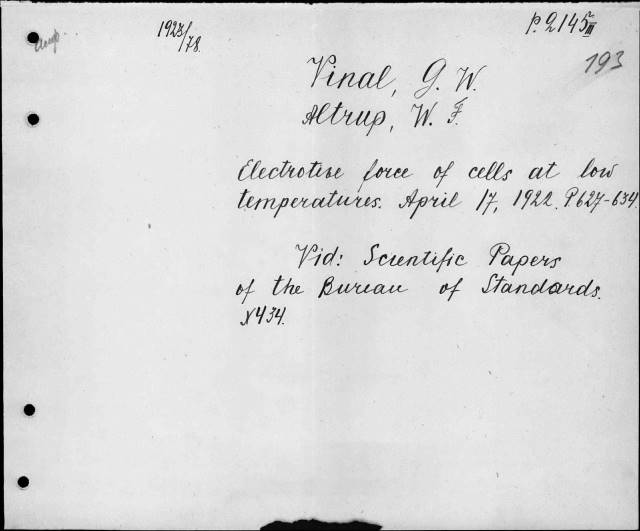 1923/78.
p. 2145 III
193
Vinal, G. W.
Altrup, W. F.
Electrotive force of cells at low
temperatures. April 17, 1922. P627-634.
Vid: Scientific Papers
of the Bureau of Standards.
N434.